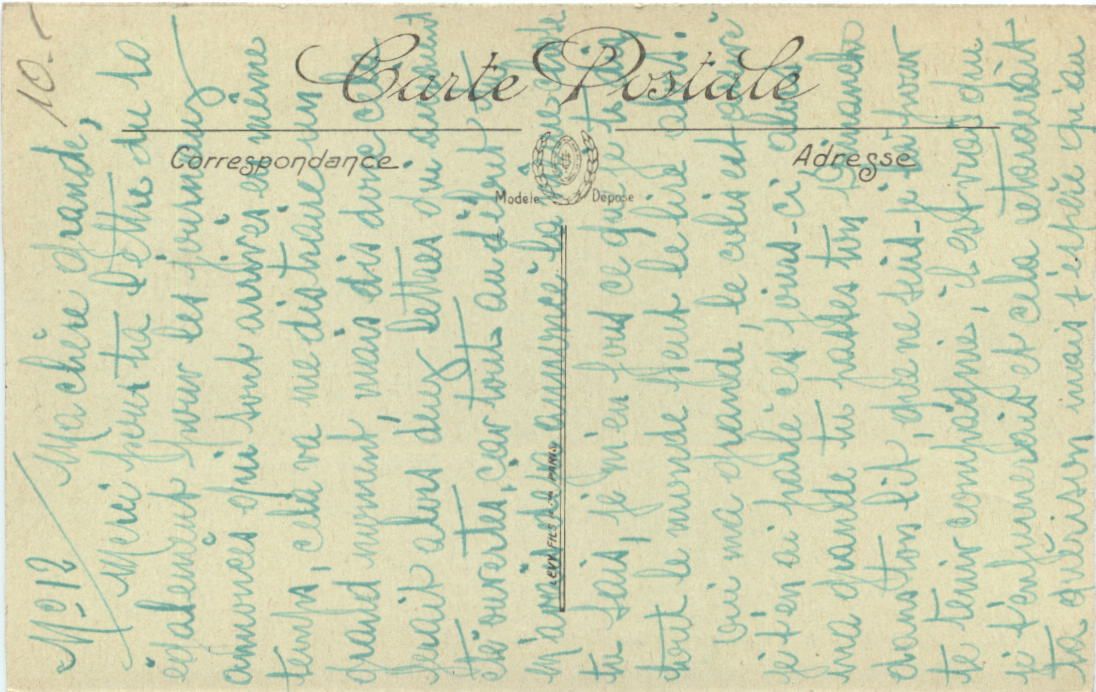 10.-
Carte Postale
Correspondance.
Adresse
Modèle Déposé
LEVY FILS & Cie PARIS
N° 12
Ma chère grande,
Merci pour ta lettre du 10
également pour les journaux
annoncés qui sont arrivés en même
temps, cela va me distraire un
grand moment mais dis donc cela
ferait alors deux lettres qui auraient
été ouvertes, car tout au début tu
m'en as annoncé la
tu sais, je m'en fous ce que je te dis
tout le monde peut le lire
oui ma grande, le colis est arrivé
je t'en ai parlé ces jours-ci alors
ma grande tu passes tes dimanches
dans ton lit, que ne suis-je là pour
te tenir compagnie, il est vrai que
je t'enrhumerais et cela retarderait
ta guérison mais j'espère qu'au